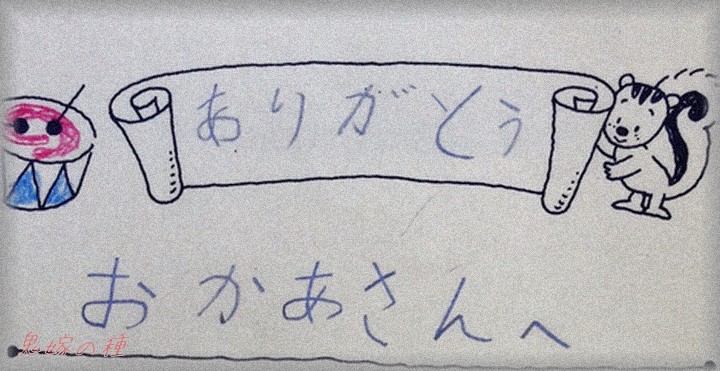 ありがとう
おかあさんへ
愚嫁の種